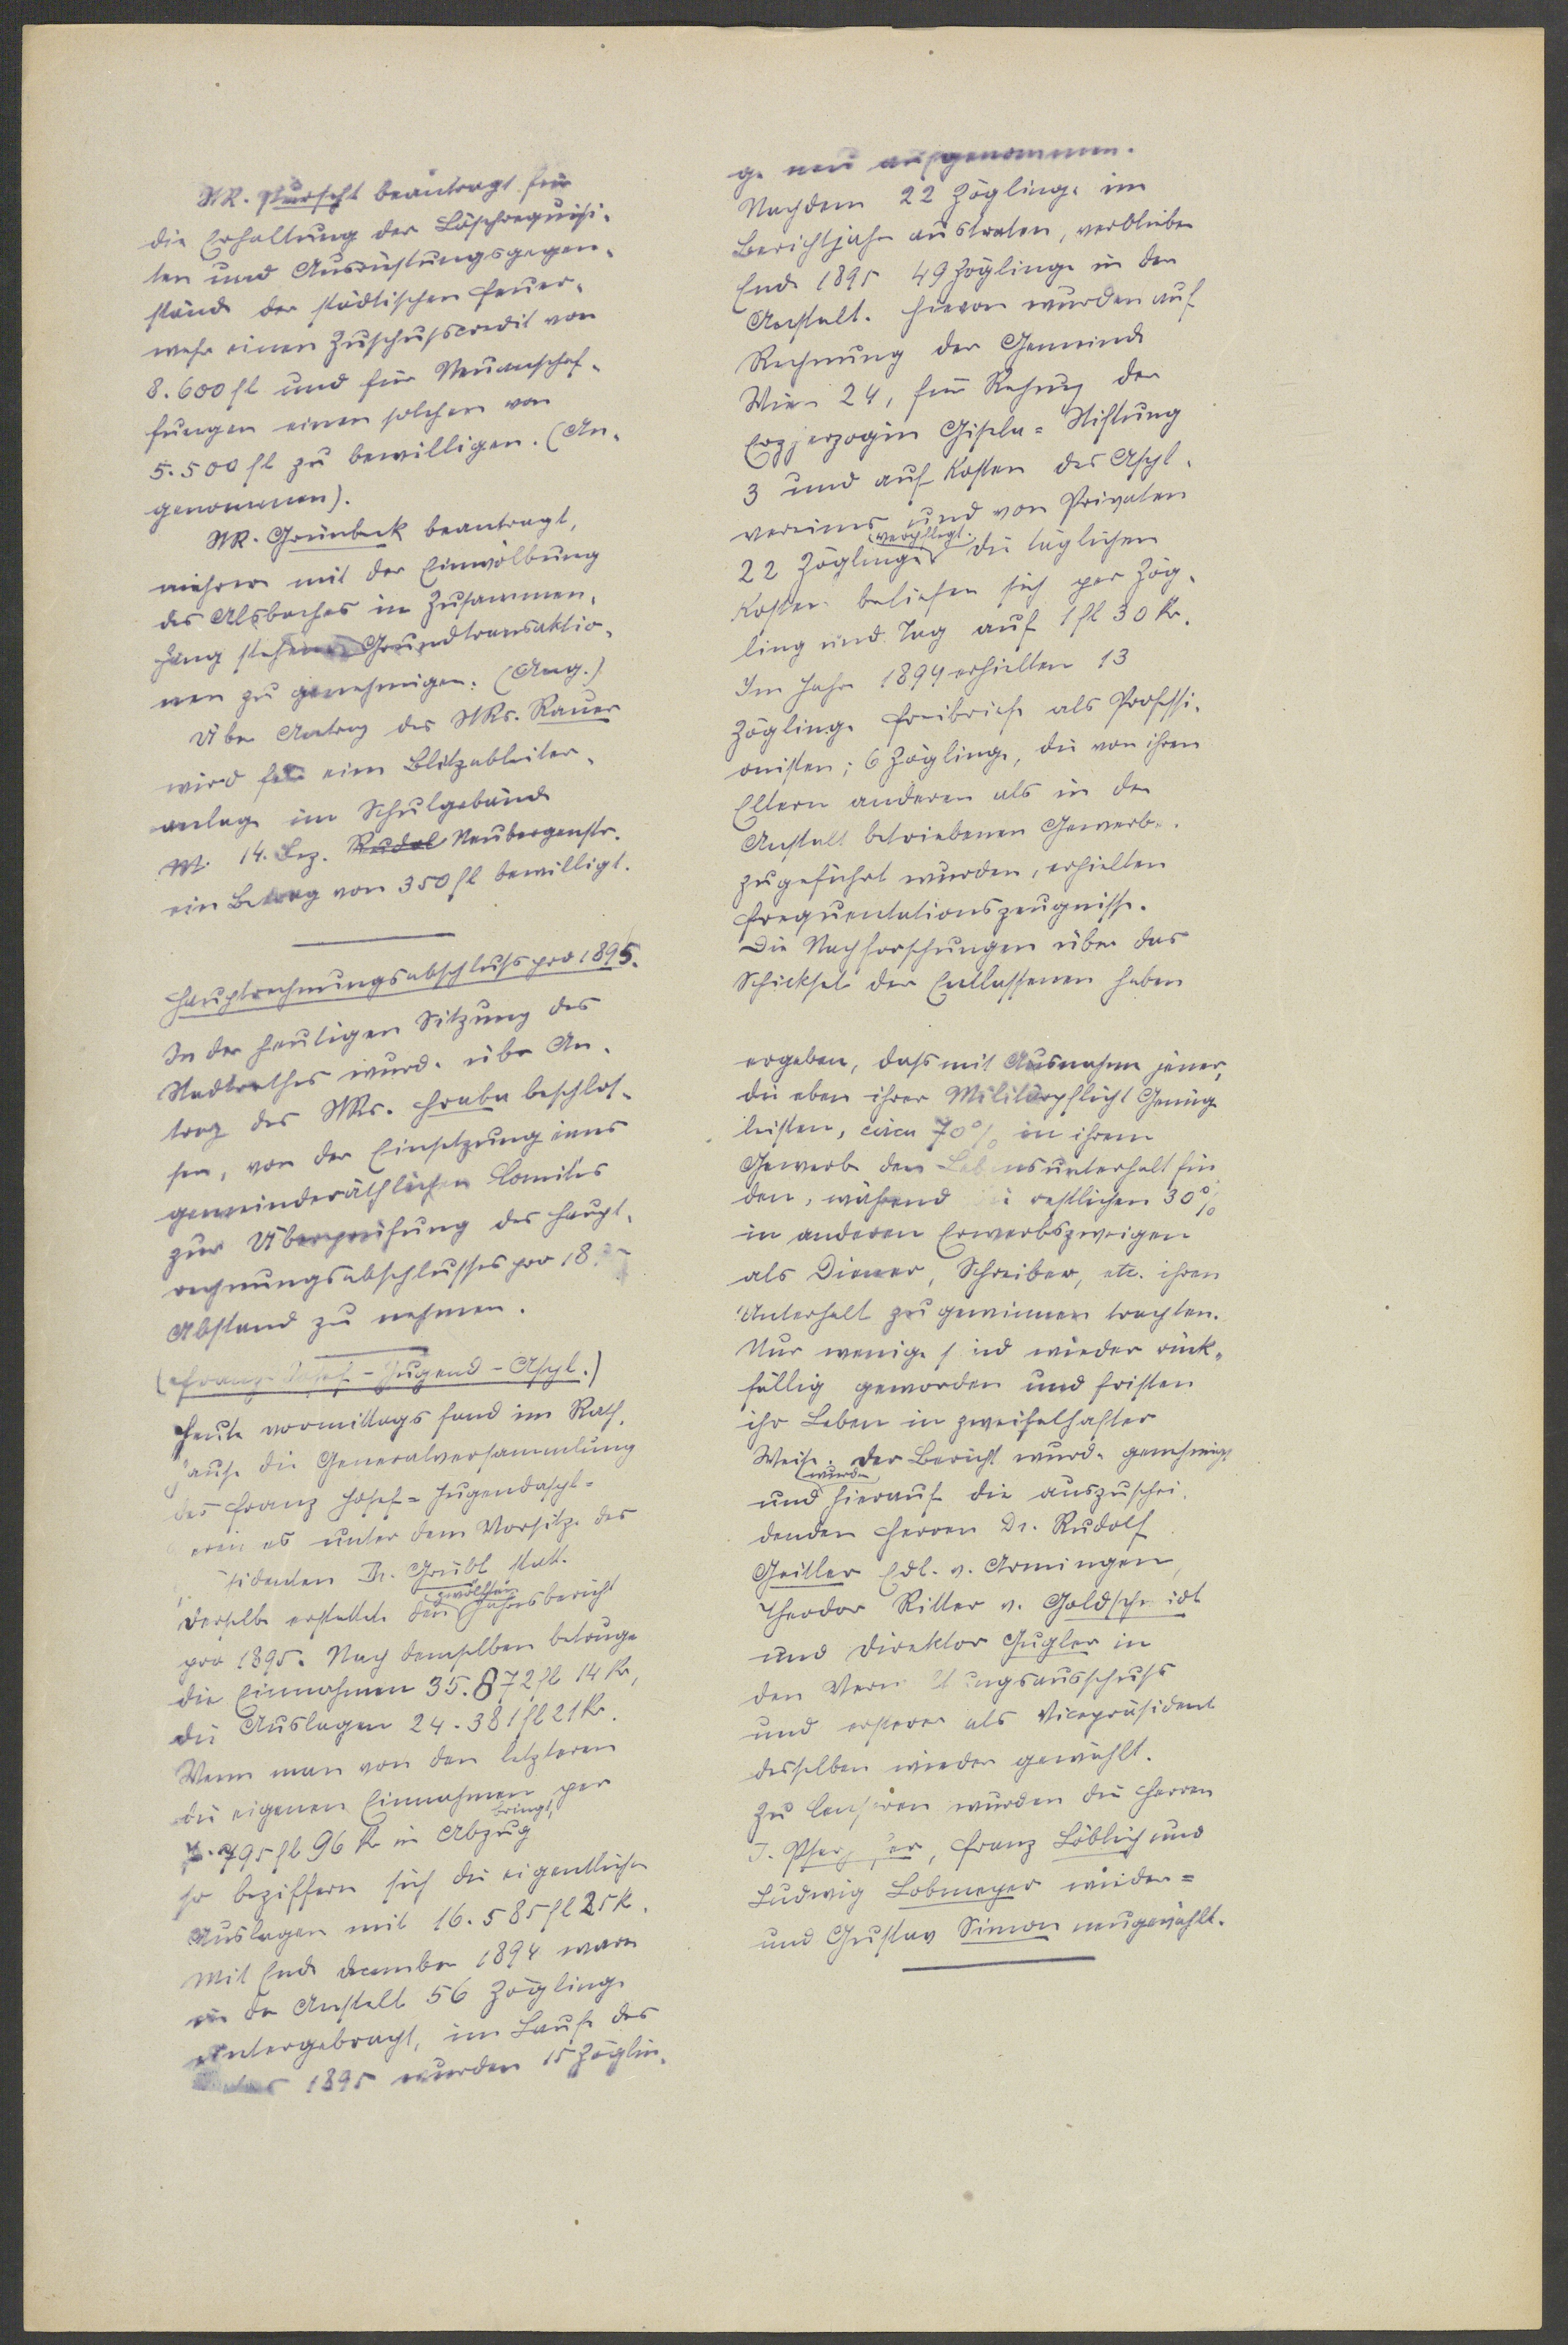 StR. Wurscht beantragt für
die Erhaltung der Löschrequisi-
ten und Ausrüstungsgegen-
stände der städtischen Feuer-
wehr einen Zuschußcredit von
8.600 fl und für Neuanschaf-
fungen einen solchen von
5.500 fl zu bewilligen. (An-
genommen).
StR. Grünbeck beantragt,
mehrere mit der Einwölbung
des Alsbaches in Zusammen-
hang stehende Grundtransaktio-
nen zu genehmigen. (Ang.)
Über Antrag des StRs. Rauer
wird für eine Blitzableiter-
anlage im Schulgebäude
14. Bez. Neubergenstr.
ein Betrag von 350 fl bewilligt.
Hauptrechnungsabschluß pro 1895.
In der heutigen Sitzung des
Stadtrathes wurde über An-
trag des StRs. Hraba beschlos-
sen, von der Einsetzung eines
gemeinderäthlichen Comités
zur Überprüfung des Haupt-
rechnungsabschlusses pro 18
Abstand zu nehmen.
(Franz Josef-Jugend-Asyl.)
Heute vormittags fand im Rath-
hause die Generalversammlung
des Franz Josef-Jugendasyl-
vereines unter dem Vorsitze des
Präsidenten Dr. Grübl statt.
Derselbe erstattete den zwölften Jahresbericht
pro 1895. Nach demselben betruge
die Einnahmen 35.872 fl 14 Kr,
die Auslagen 24.381 fl 21 Kr.
Wenn man von den letzteren
die eigenen Einnahmen per
7.795 fl 96 Kr in Abzug bringt,
so beziffern sich die eigentliche
Auslagen mit 16.585 fl 25 K.
Mit Ende December 1894 waren
in der Anstalt 56 Zöglinge
untergebracht, im Laufe des
Jahres 1895 wurden 15 Zöglin-
ge neu aufgenommen.
Nachdem 22 Zöglinge im
Berichtjahr austraten, verblieben
Ende 1895 49 Zöglinge in der
Anstalt. Hievon wurden auf
Rechnung der Gemeinde
Wien 24, für Rechnung der
Erzherzogin Gisela-Stiftung
3 und auf Kosten des Asyl-
vereines und von Privaten
22 Zöglinge verpflegt. Die täglichen
Kosten beliefen sich per Zög-
ling und Tag auf 1 fl 30 Kr.
Im Jahre 1894 erhielten 13
Zöglinge Freibriefe als Professi-
onisten; 6 Zöglinge, die von ihren
Eltern anderen als in der
Anstalt betriebenen Gewerbe
zugeführt wurden, erhielten
Frequentationszeugnisse.
Die Nachforschungen über das
Schicksal der Entlassenen haben
ergeben, daß mit Ausnahme jener,
die eben ihrer Militärpflicht Genüge
leisten, circa 70% in ihrem
Gewerbe den Lebensunterhalt fin
den, während die restlichen 30%
in anderen Erwerbszweigen
als Diener, Schreiber, etc. ihren
Unterhalt zu gewinnen trachten.
Nur wenige sind wieder rück-
fällig geworden und fristen
ihr Leben in zweifelhafter
Weise. Der Bericht wurde genehmigt
und wurde hierauf die auszuschei-
denden Herren Dr. Rudolf
Geitler Edl. v. Armingen,
Theodor Ritter v. Goldschmidt
und Direktor Gugler in
den Verwaltungsausschuß
und ersterer als Vicepräsident
desselben wieder gewählt.
Zu Censoren wurden die Herren
Franz Löblich und
Ludwig Lobmeyer wieder-
und Gustav Simon neugewählt.